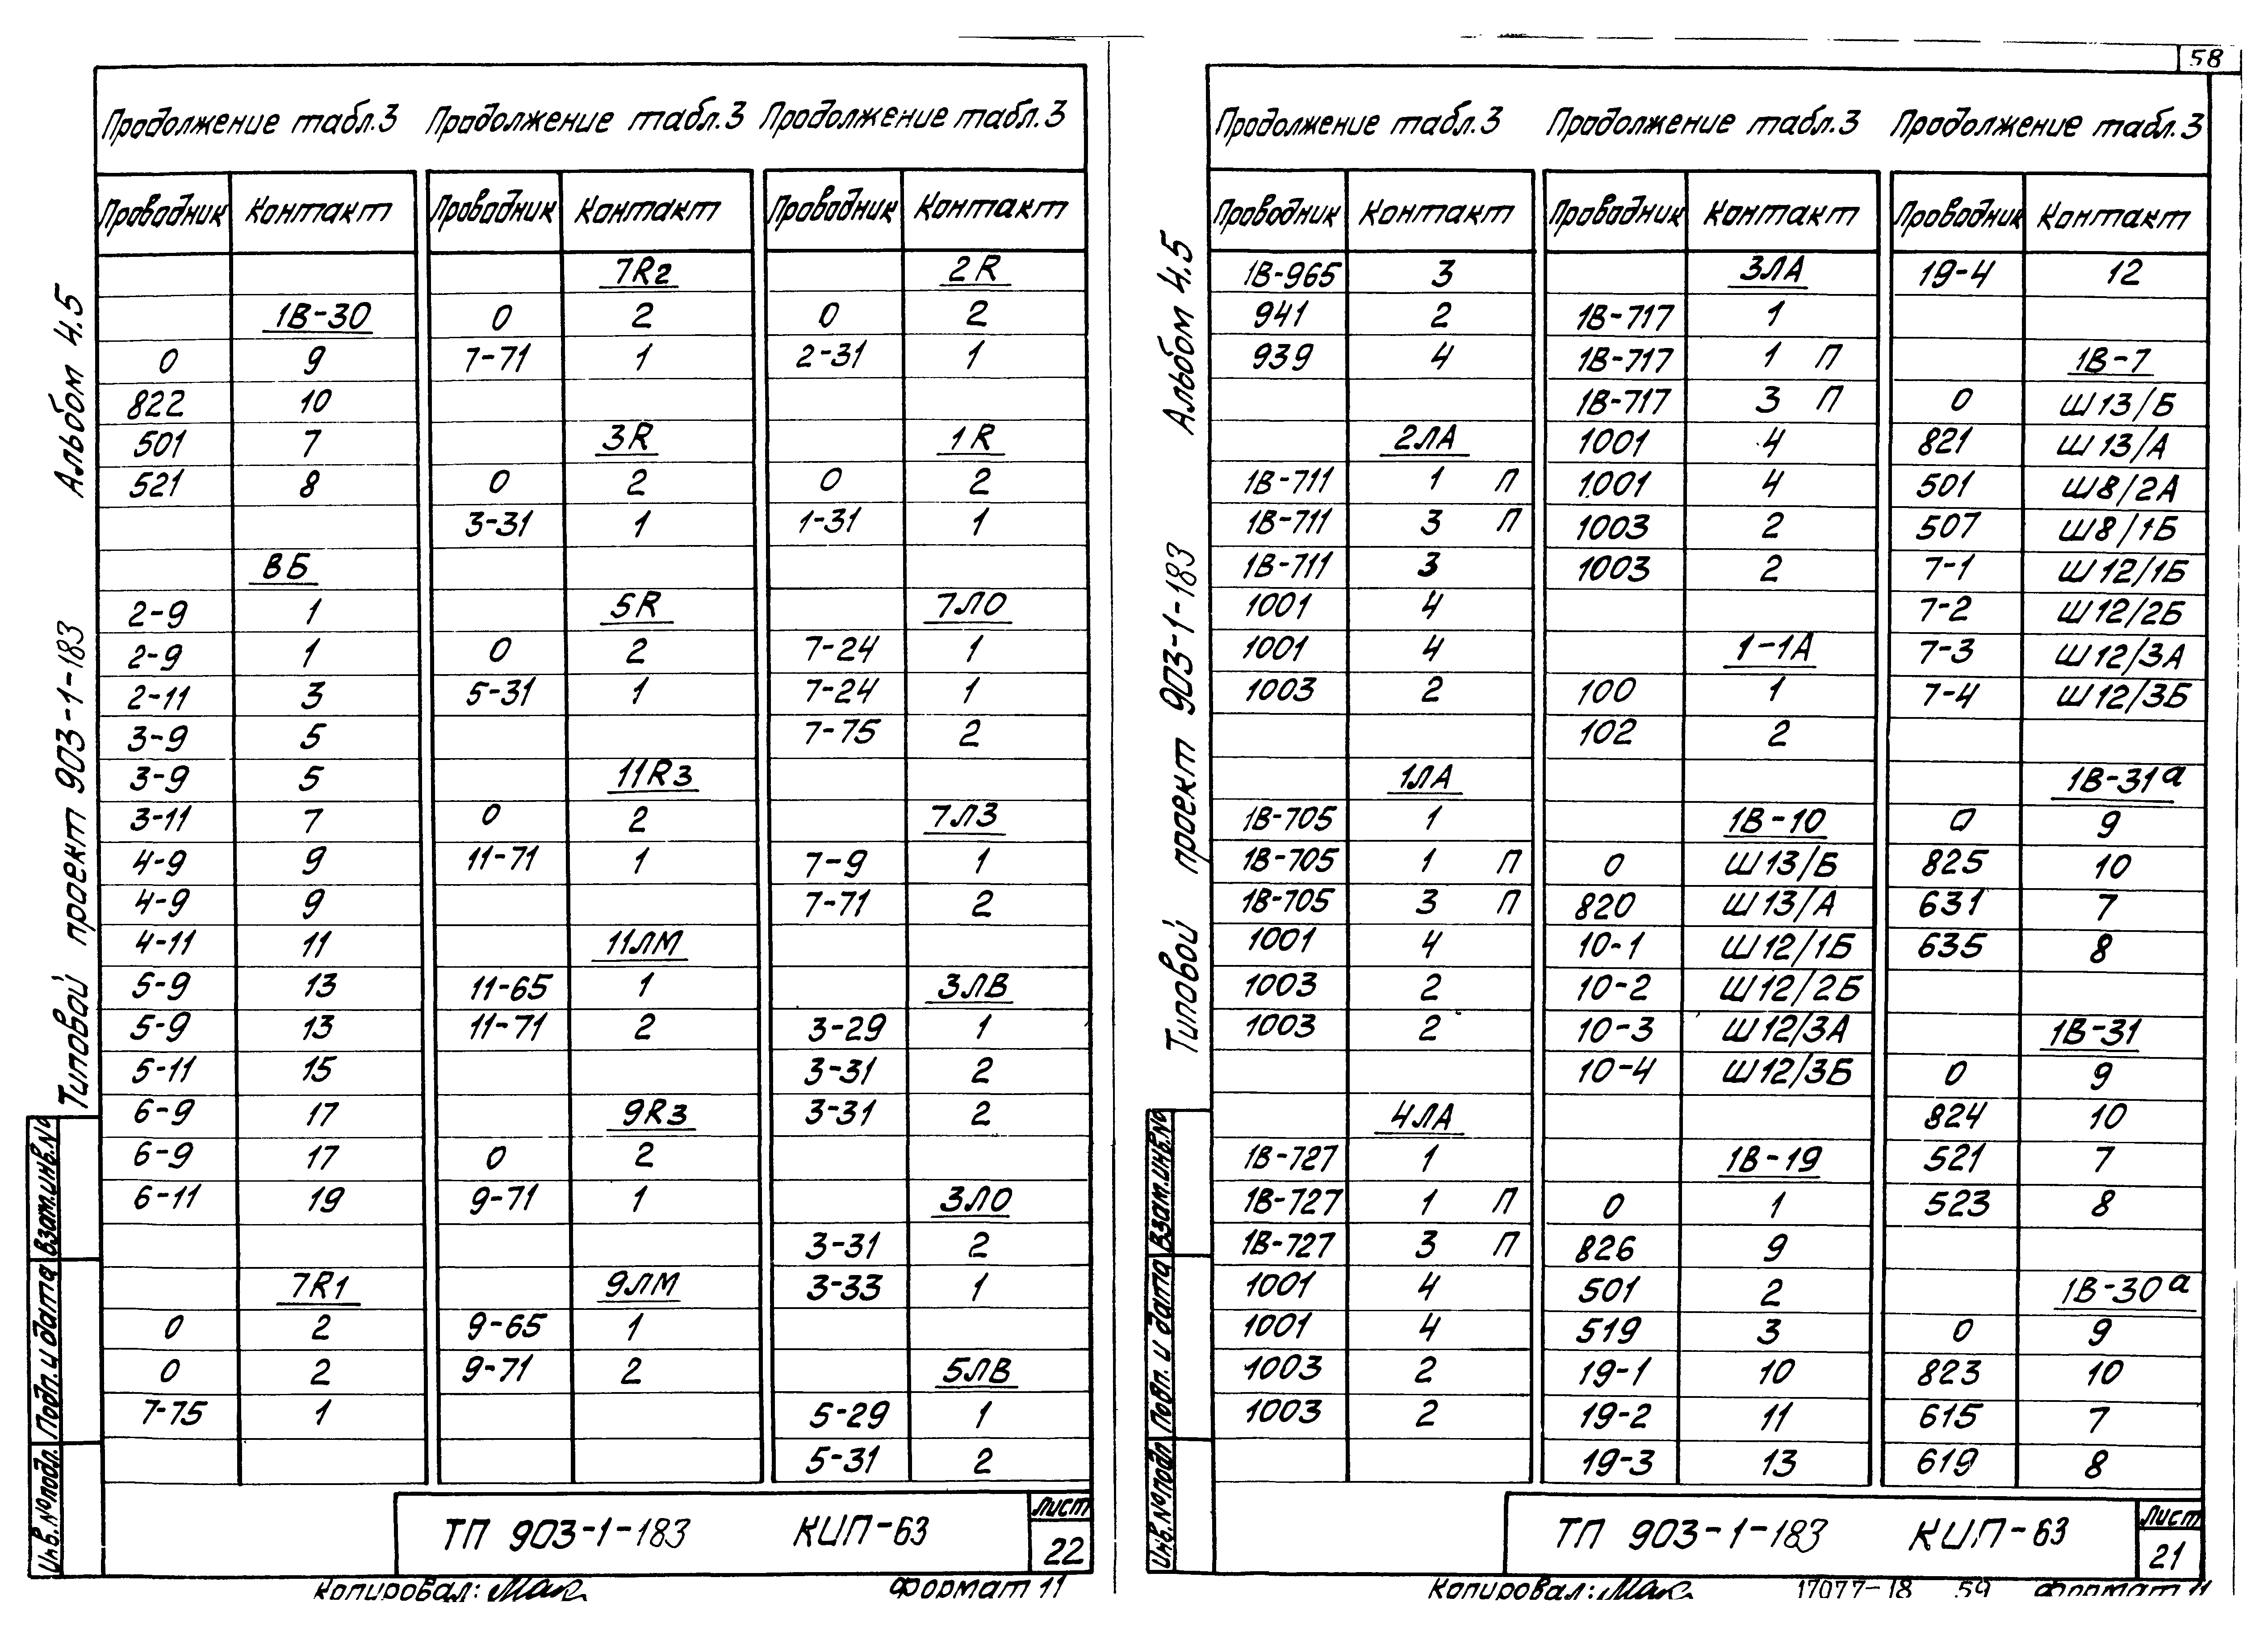 58
Продолжение табл.3 Продолжение табл.3 Продолжение табл.3
Проводник Контакт Проводник Контакт Проводник Контакт
7R2 2R
1В-30 0 2 0 2
0 9 7-71 1 2-31 1
822 10
501 7 3R 1R
521 8 0 2 0 2
3-31 1 1-31 1
ВБ
2-9 1 5R 7ЛО
2-9 1 0 2 7-24 1
2-11 3 5-31 1 7-24 1
3-9 5 7-75 2
3-9 5 11R3
3-11 7 0 2 7ЛЗ
4-9 9 11-71 1 7-9 1
4-9 9 7-71 2
4-11 11 11ЛМ
5-9 13 11-65 1 3ЛВ
5-9 13 11-71 2 3-29 1
5-11 15 3-31 2
6-9 17 9R3 3-31 2
6-9 17 0 2
6-11 19 9-71 1 3ЛО
3-31 2
7R1 9ЛМ 3-33 1
0 2 9-65 1
0 2 9-71 2 5ЛВ
7-75 1 5-29 1
5-31 2
Типовой проект 903-1-183 Альбом 4.5
Взам.инв.№
Подп. и дата
Инв.№подл.
ТП 903-1-183 КИП-63
Лист
22
Копировал: Мак Формат 11
Продолжение табл.3 Продолжение табл.3 Продолжение табл.3
Проводник Контакт Проводник Контакт Проводник Контакт
1В-965 3 3ЛА 19-4 12
941 2 1В-717 1
939 4 1В-717 1 П 1В-7
1В-717 3 П 0 Ш13/Б
2ЛА 1001 4 821 Ш13/А
1В-711 1 П 1001 4 501 Ш8/2А
1В-711 3 П 1003 2 507 Ш8/1Б
1В-711 3 1003 2 7-1 Ш12/1Б
1001 4 7-2 Ш12/2Б
1001 4 1-1А 7-3 Ш12/3А
1003 2 100 1 7-4 Ш12/3Б
102 2
1ЛА 1В-31а
1В-705 1 1В-10 0 9
1В-705 1 П 0 Ш13/Б 825 10
1В-705 3 П 820 Ш13/А 631 7
1001 4 10-1 Ш12/1Б 635 8
1003 2 10-2 Ш12/2Б
1003 2 10-3 Ш12/3А 1В-31
10-4 Ш12/3Б 0 9
4ЛА 824 10
1В-727 1 1В-19 521 7
1В-727 1 П 0 1 523 8
1В-727 3 П 826 9
1001 4 501 2 1В-30а
1001 4 519 3 0 9
1003 2 19-1 10 823 10
1003 2 19-2 11 615 7
19-3 13 619 8
Типовой проект 903-1-183 Альбом 4.5
Взам.инв.№
Подп. и дата
Инв.№подл
ТП 903-1-183 КИП-63
Лист
21
Копировал: Мак 17077-18 59 Формат 11